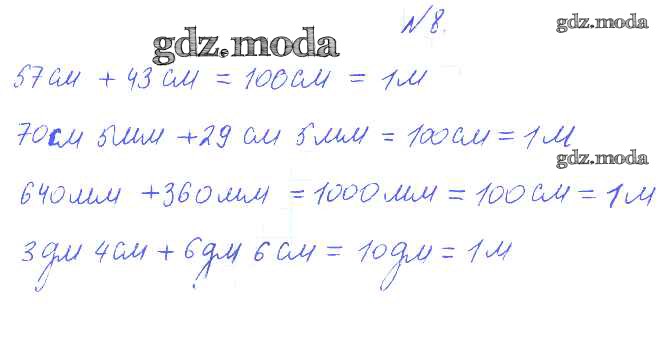 №8.
gdz.moda
gdz.moda
57см + 43 см = 100см = 1м
70см 5мм + 29 см 5мм = 100см = 1м
gdz.moda
640мм + 360мм = 1000мм = 100см = 1м
3дм 4см + 6дм 6см = 10дм = 1м